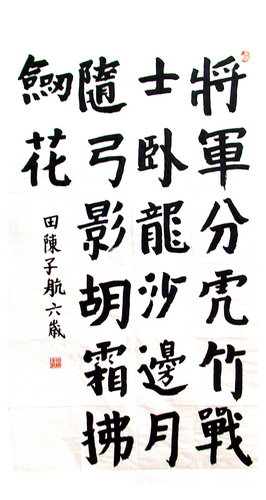 將軍分虎竹戰
士卧龍沙邊月
隨弓影胡霜拂
劒花
田陳子航六歲